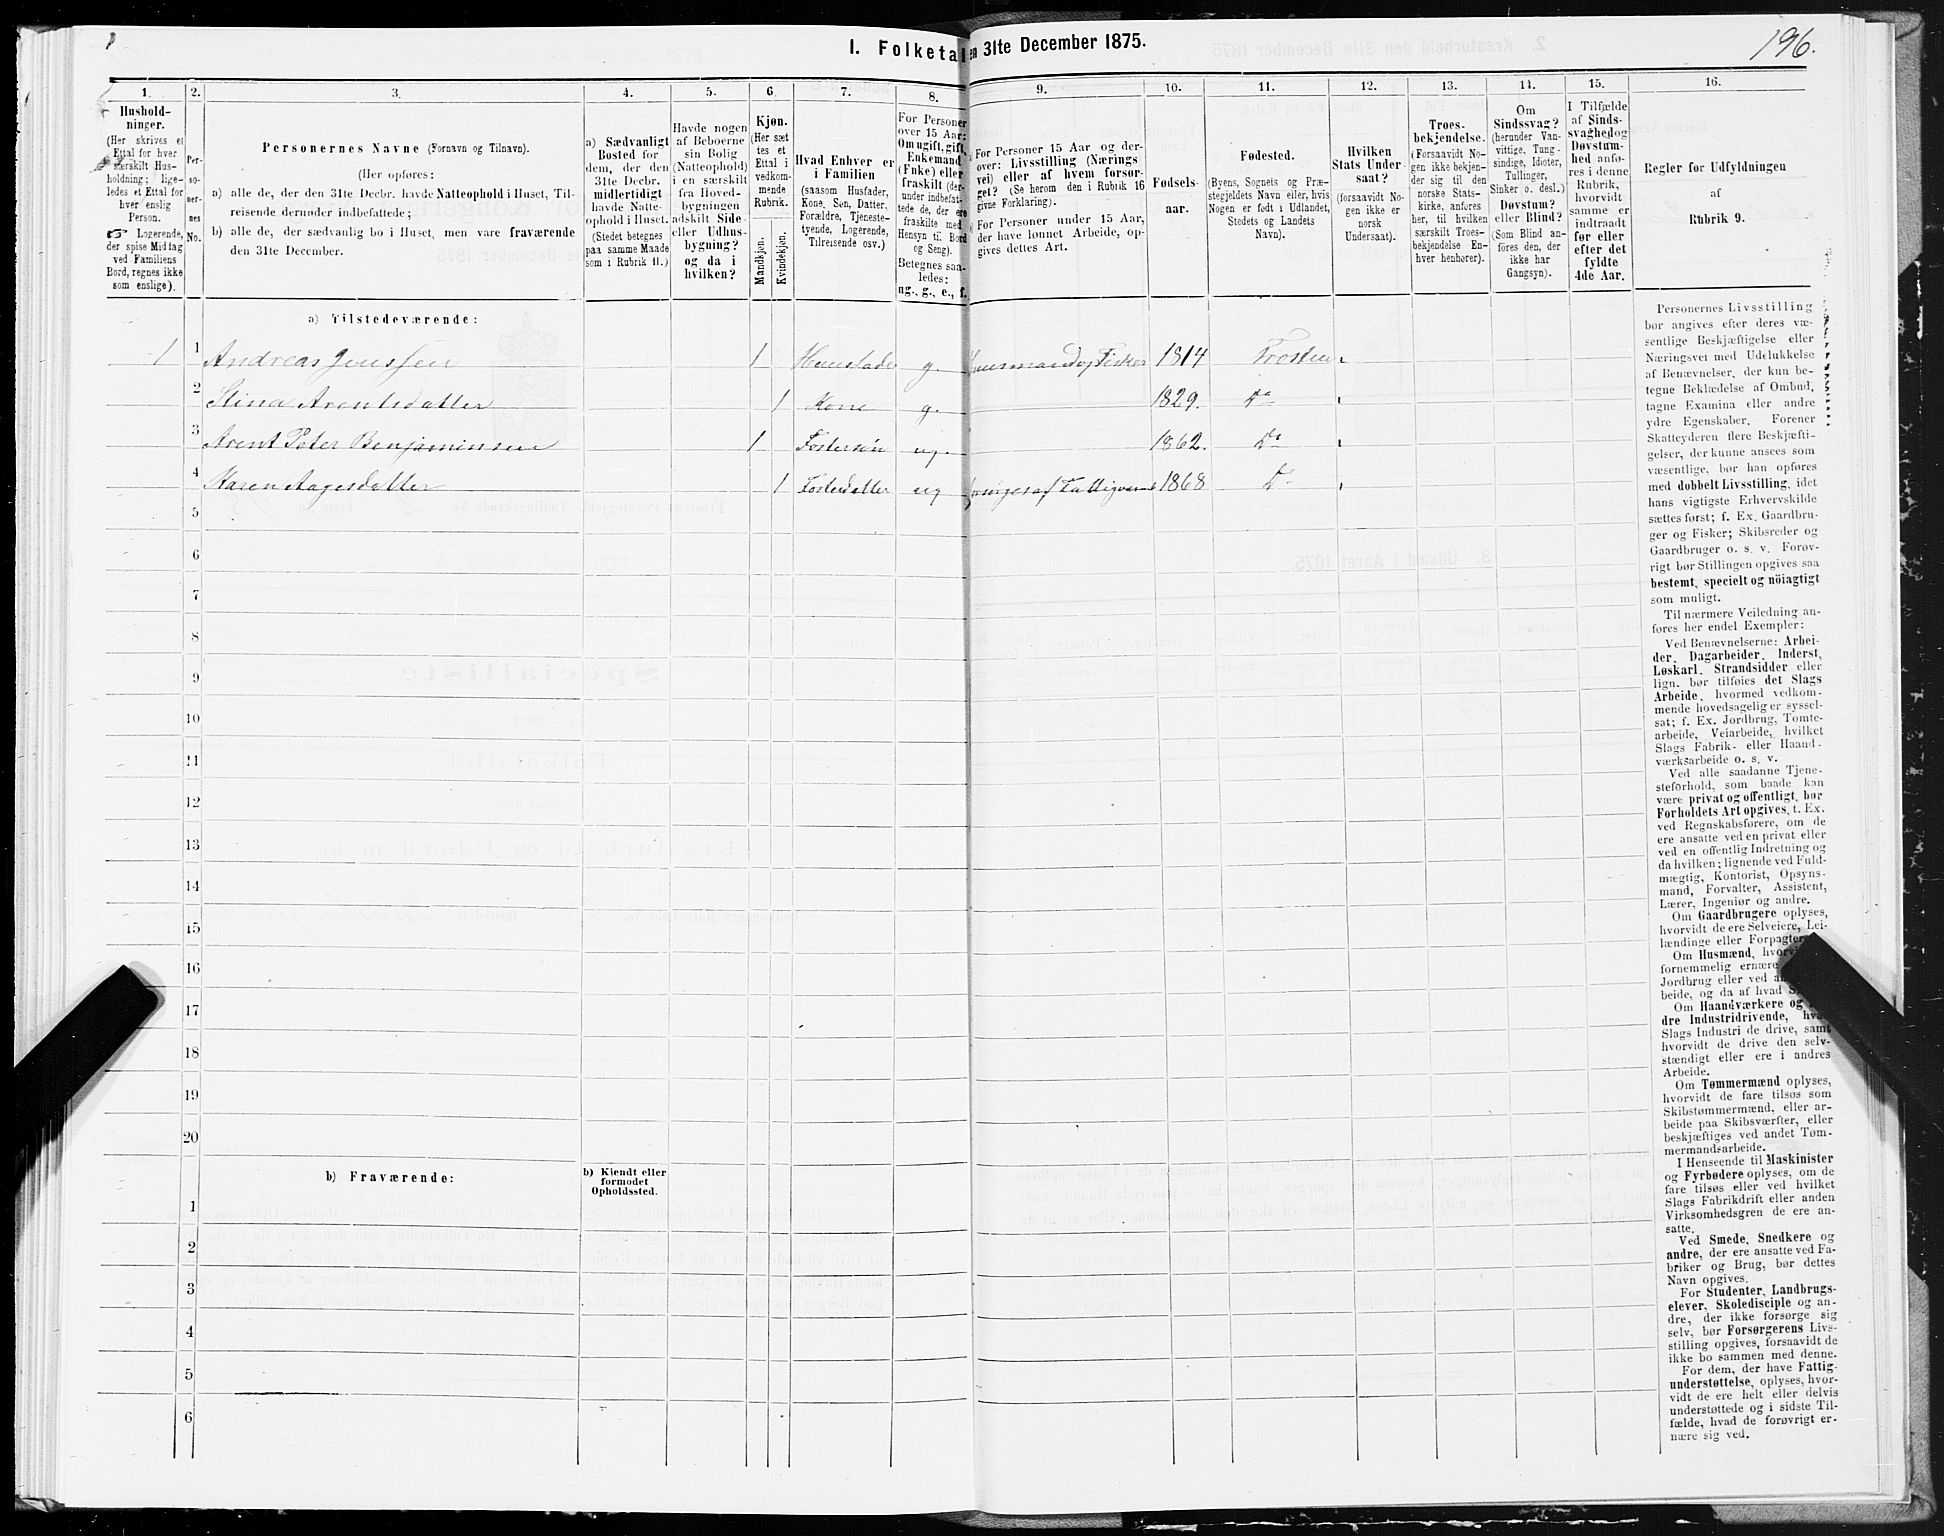 196.
I. Folketal
en 31te December 1875.
1. 2. 3. 4. 5. 6. 7. 8. 9. 10. 11. 12. 13. 14. 15. 16.
Hushold-
ninger.
(Her skrives et
Ettal for hver
særskilt Hus-
holdning; lige-
ledes et Ettal for
hver enslig
Person.
Logerende,
der spise Middag
ved Familiens
Bord, regnes ikke
som enslige).
Per-
so-
ner-
nes
No.
Personernes Navne (Fornavn og Tilnavn).
(Her opføres:
a) alle de, der den 31te Decbr. havde Natteophold i Huset, Til-
reisende derunder indbefattede;
b) alle de, der sædvanlig bo i Huset, men vare fraværende
den 31te December.
a) Sædvanligt
Bosted for
dem, der den
31te Decbr.
midlertidigt
havde Natte-
ophold i Huset.
(Stedet betegnes
paa samme Maade
som i Rubrik 11.)
Havde nogen
af Beboerne
sin Bolig
(Natteophold)
i en særskilt
fra Hoved-
bygningen
adskilt Side-
eller Udhus-
bygning?
og da i
hvilken?
Kjøn.
(Her sæt-
tes et
Ettal i
vedkom-
mende
Rubrik.
Mandkjøn.
Kvindekjøn.
Hvad Enhver er
i Familien
(saasom Husfader,
Kone, Søn, Datter,
Forældre, Tjeneste-
tyende, Logerende,
Tilreisende osv.)
For Personer
over 15 Aar:
Om ugift, gift,
Enkemand
(Enke) eller
fraskilt (der-
under indbefat-
tede de, der ere
fraskilte med
Hensyn til Bord
og Seng).
Betegnes saa-
ledes:
ug., g., e., f.
For Personer 15 Aar og der-
over: Livsstilling (Nærings
vei) eller af hvem forsør-
get? (Se herom den i Rubrik 16
givne Forklaring).
For Personer under 15 Aar,
der have lønnet Arbeide, op-
gives dettes Art.
Fødsels-
aar.
Fødested.
(Byens, Sognets og Præ-
stegjeldets Navn eller, hvis
Nogen er født i Udlandet,
Stedets og Landets
Navn).
Hvilken
Stats Under-
saat?
(forsaavidt No-
gen ikke er
norsk
Undersaat).
Troes-
bekjendelse.
(Forsaavidt No-
gen ikke bekjen-
der sig til den
norske Stats-
kirke, anføres
her, til hvilken
særskilt Troes-
bekjendelse En-
hver henhører).
Om
Sindssvag?
(herunder Van-
vittige, Tung-
sindige, Idioter,
Tullinger,
Sinker o. desl.)
Døvstum?
eller Blind?
(Som Blind an-
føres den, der
ikke har
Gangsyn).
I Tilfælde
af Sinds-
svaghed og
Døvstum-
hed anfø-
res i denne
Rubrik,
hvorvidt
samme er
indtraadt
før eller
efter det
fyldte
4de Aar.
Regler for Udfyldningen
af
Rubrik 9.
a) Tilstedeværende:
1 1 Andreas Jenssen 1 g. Fisker 1814 Frosten
2 Stina Arentsdatter 1 Kone g. 1829. Do
3 Arent Peter Benjaminsen 1 Fostersøn ug. 1862. Do
4 Karen Aagesdatter 1 Fosterdatter ug 1868 Do
5
6
7
8
9
10
11
12
13
14
15
16
17
18
19
20
b) Fraværende:
b) Kjendt eller
formodet
Opholdssted.
1
2
3
4
5
6
Personernes Livsstilling
bør angives efter deres væ-
sentlige Beskjæftigelse eller
Næringsvei med Udelukkelse
af Benævnelser, der kun be-
tegne Beklædelse af Ombud,
tagne Examina eller andre
ydre Egenskaber. Forener
Skatteyderen flere Beskjæfti-
gelser, der kunne ansees som
væsentlige, bør han opføres
med dobbelt Livsstilling, idet
hans vigtigste Erhvervskilde
sættes først; f. Ex. Gaardbru-
ger og Fisker; Skibsreder og
Gaardbruger o. s. v. Forøv-
rigt bør Stillingen opgives saa
bestemt, specielt og nöiagtigt
som muligt.
Til nærmere Veiledning an-
føres her endel Exempler:
Ved Benævnelserne: Arbei-
der, Dagarbeider, Inderst,
Løskarl, Strandsidder eller
lign. bør tilføies det Slags
Arbeide, hvormed vedkom-
mende hovedsagelig er syssel-
sat; f. Ex. Jordbrug, Tomte-
arbeide, Veiarbeide, hvilket
Slags Fabrik- eller Haand-
værksarbeide o. s. v.
Ved alle saadanne Tjene-
steforhold, som baade kan
være privat og offentligt, bør
Forholdets Art opgives, t. Ex.
ved Regnskabsførere, om de
ere ansatte ved en privat eller
ved en offentlig Indretning og
da hvilken; lignende ved Fuld-
mægtig, Kontorist, Opsyns-
mand, Forvalter, Assistent,
Lærer, Ingeniør og andre.
Om Gaardbrugere oplyses,
hvorvidt de ere Selveiere, Lei-
lændinge eller Forpagter
Om Husmænd, hvorvi
fornemmelig ernære
Jordbrug eller ved an
beide, og da af hvad
Om Haandværkere og
dre Industridrivende, hva
Slags Industri de drive, samt
hvorvidt de drive den selv-
stændigt eller ere i andres
Arbeide.
Om Tømmermænd oplyses,
hvorvidt de fare tilsøs som
Skibstømmermænd, eller ar-
beide paa Skibsværfter, eller
beskjæftiges ved andet Tøm-
mermandsarbeide.
I Henseende til Maskinister
og Fyrbødere oplyses, om de
fare tilsøs eller ved hvilket
Slags Fabrikdrift eller anden
Virksomhedsgren de ere an-
satte.
Ved Smede, Snedkere og
andre, der ere ansatte ved Fa-
briker og Brug, bør dettes
Navn opgives.
For Studenter, Landbrugs-
elever, Skoledisciple og an-
dre, der ikke forsørge sig
selv, bør Forsørgerens Livs-
stilling opgives, forsaavidt de
ikke bo sammen med denne.
For dem, der have Fattig-
understøttelse, oplyses, hvor-
vidt de ere helt eller delvis
understøttede og i sidste Til-
fælde, hvad de forøvrigt er-
nære sig ved.